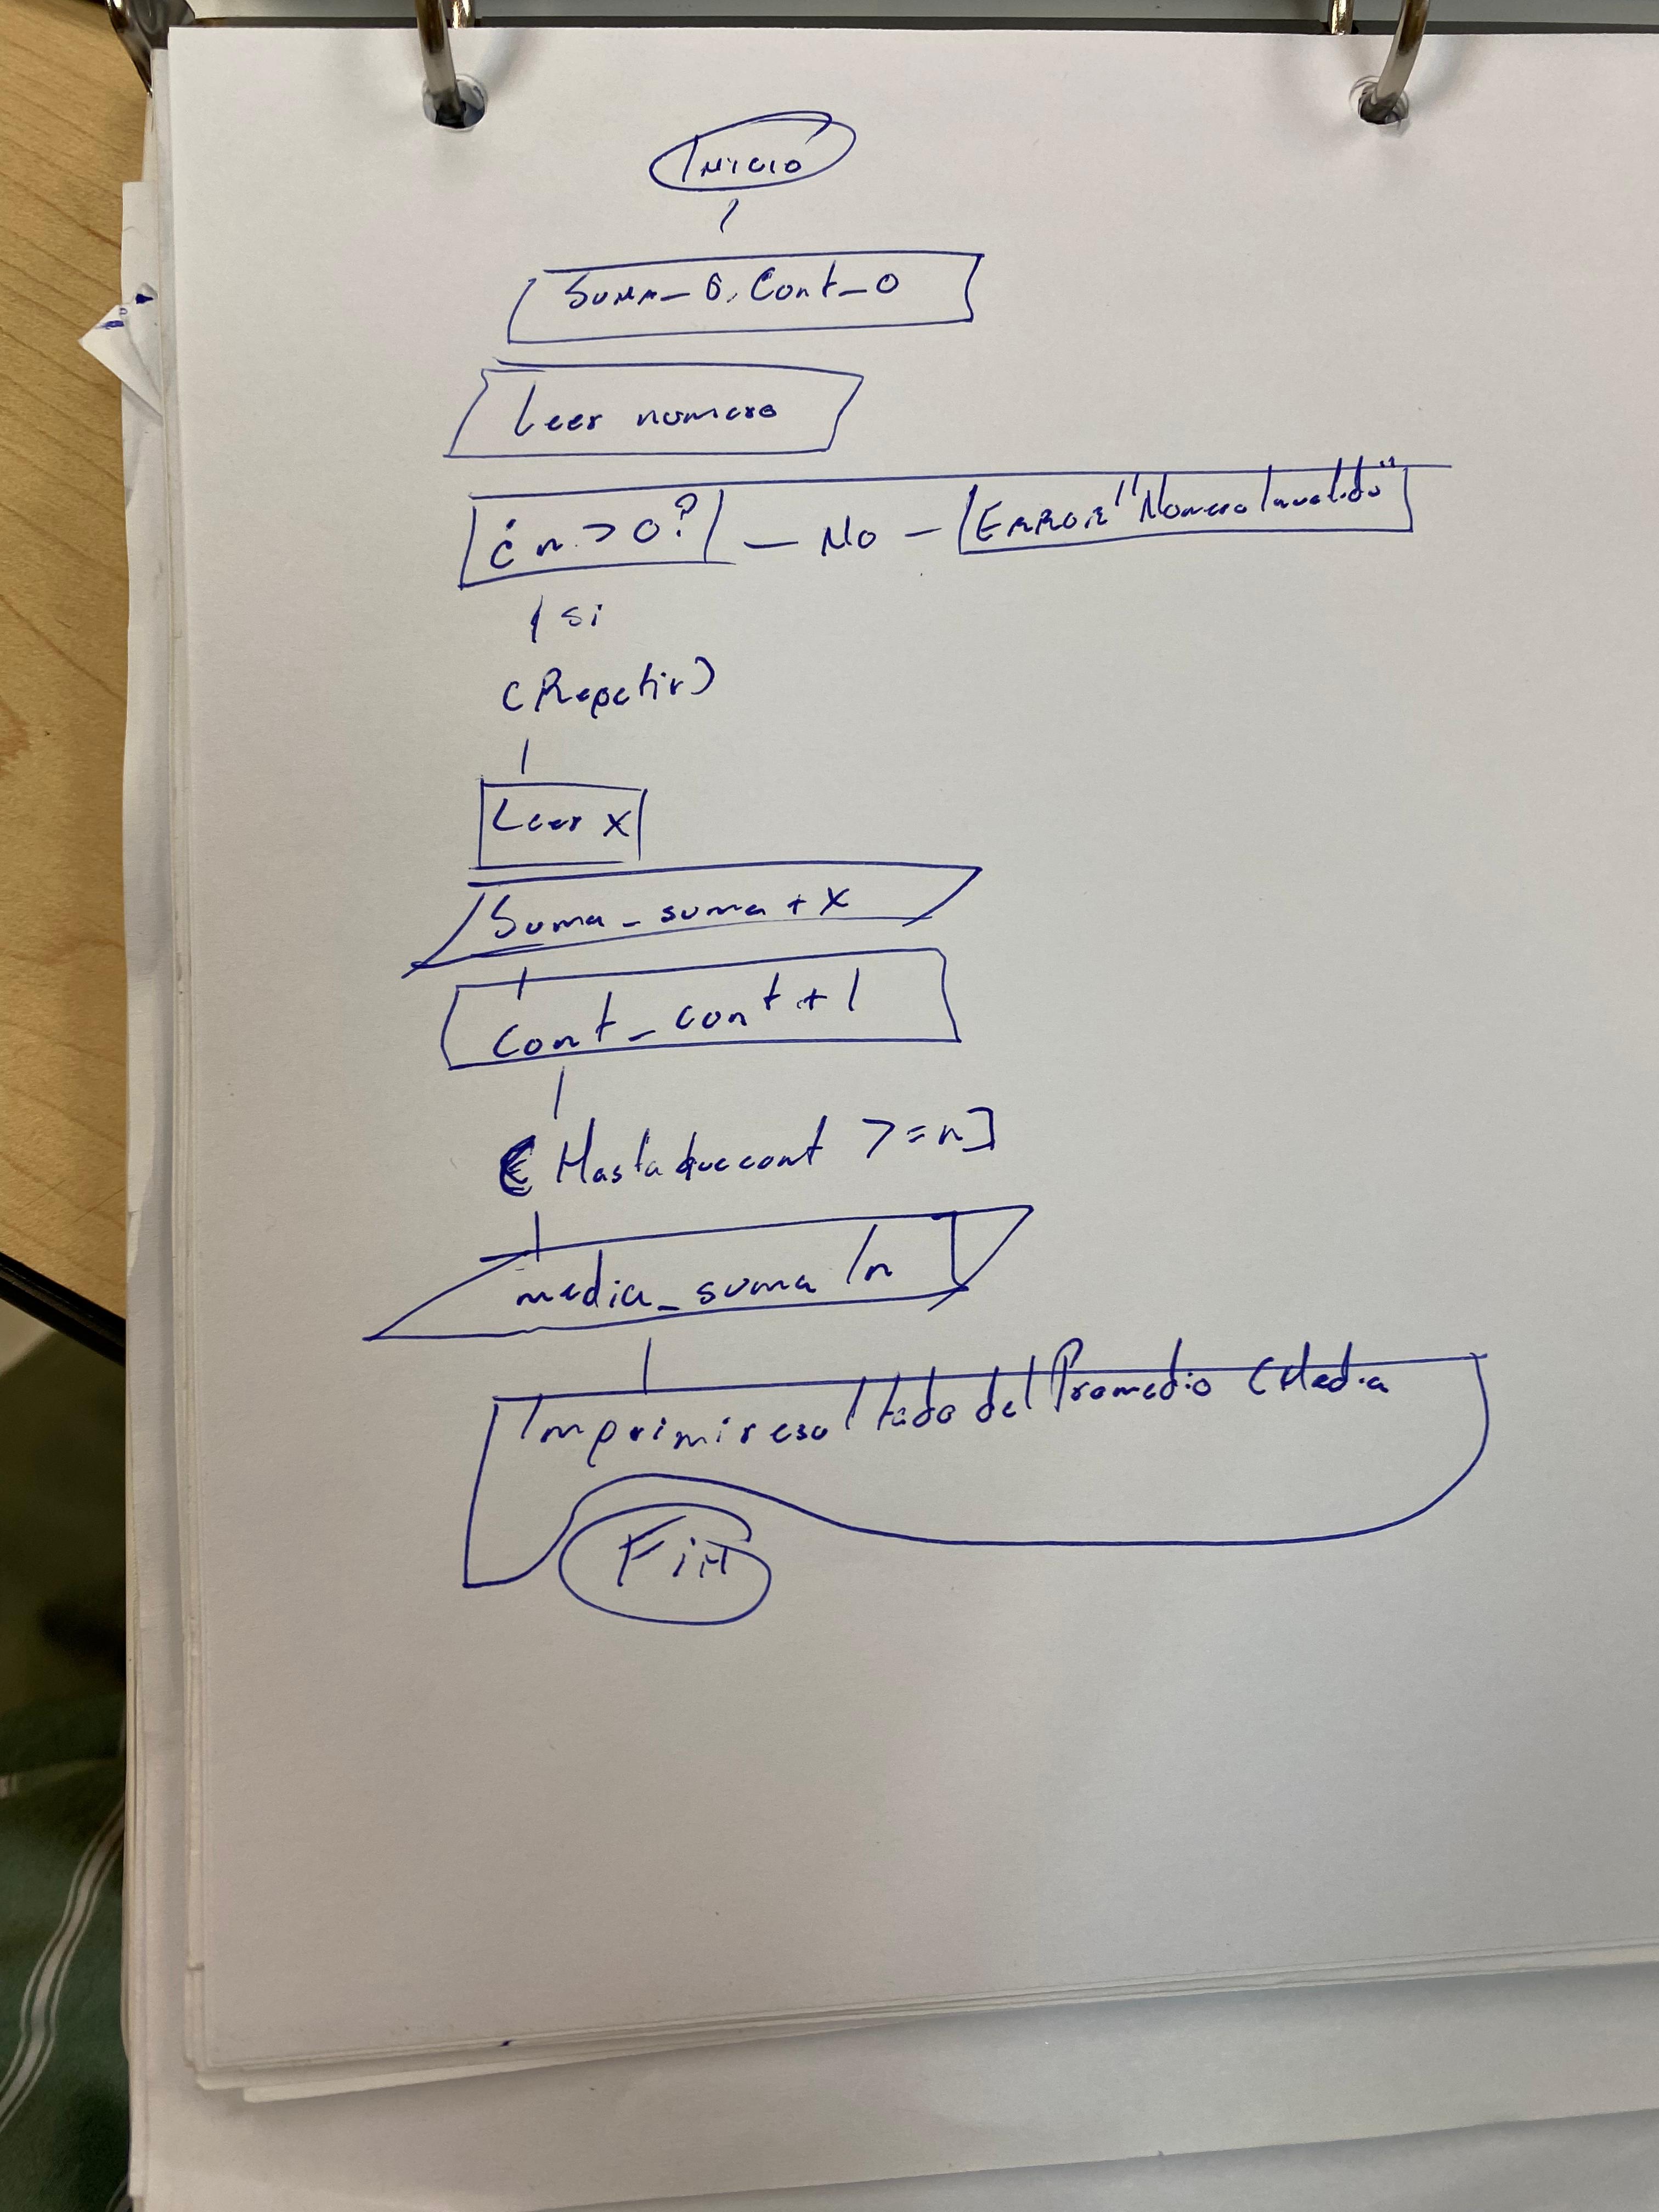 Inicio
Suma_0, Cont_0
Leer numero
¿n > 0? — No — Error "Numero Invalido"
si
(Repetir)
Leer x
Suma_suma + x
Cont_cont + 1
Hasta que cont >= n]
media_suma / n
Imprimir esultado del Promedio (Media
Fin